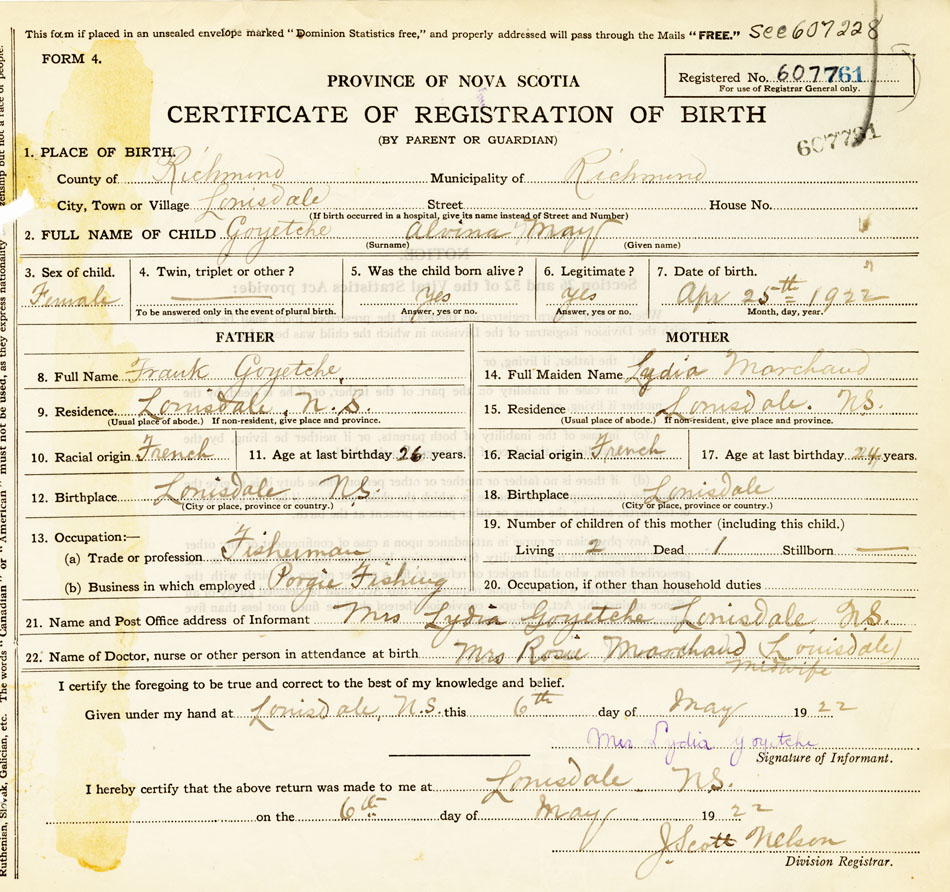 This form if placed in an unsealed envelope marked "Dominion Statistics free," and properly addressed will pass through the Mails "FREE." See 607228
FORM 4.
Registered No. 607761
For use of Registrar General only.
PROVINCE OF NOVA SCOTIA
CERTIFICATE OF REGISTRATION OF BIRTH
(BY PARENT OR GUARDIAN)
607791
1. PLACE OF BIRTH.
County of Richmond Municipality of Richmond
City, Town or Village Louisdale Street House No.
(If birth occurred in a hospital, give its name instead of Street and Number)
2. FULL NAME OF CHILD Goyetche Alvina May
(Surname) (Given name)
3. Sex of child. 4. Twin, triplet or other? 5. Was the child born alive? 6. Legitimate? 7. Date of birth.
Female Yes Yes Apr 25th 1922
To be answered only in the event of plural birth. Answer, yes or no. Answer, yes or no. Month, day, year.
FATHER MOTHER
8. Full Name Frank Goyetche 14. Full Maiden Name Lydia Marchand
9. Residence Louisdale, N.S. 15. Residence Louisdale. NS.
(Usual place of abode.) If non-resident, give place and province. (Usual place of abode.) If non-resident, give place and province.
10. Racial origin French 11. Age at last birthday 26 years. 16. Racial origin French 17. Age at last birthday 24 years.
12. Birthplace Louisdale NS. 18. Birthplace Louisdale
(City or place, province or country.) (City or place, province or country.)
13. Occupation:— 19. Number of children of this mother (including this child.)
(a) Trade or profession Fisherman Living 2 Dead 1 Stillborn —
(b) Business in which employed Porgie Fishing 20. Occupation, if other than household duties
21. Name and Post Office address of Informant Mrs Lydia Goyetche Louisdale, NS.
22. Name of Doctor, nurse or other person in attendance at birth Mrs Rosie Marchand (Louisdale)
Midwife
I certify the foregoing to be true and correct to the best of my knowledge and belief.
Given under my hand at Louisdale, N.S. this 6th day of May 1922
Mrs Lydia Goyetche
Signature of Informant.
I hereby certify that the above return was made to me at Louisdale NS.
on the 6th day of May 1922
J. Scott Nelson
Division Registrar.
Ruthenian, Slovak, Galician, etc. The words "Canadian" or "American" must not be used, as they express nationality or citizenship but not a race of people.